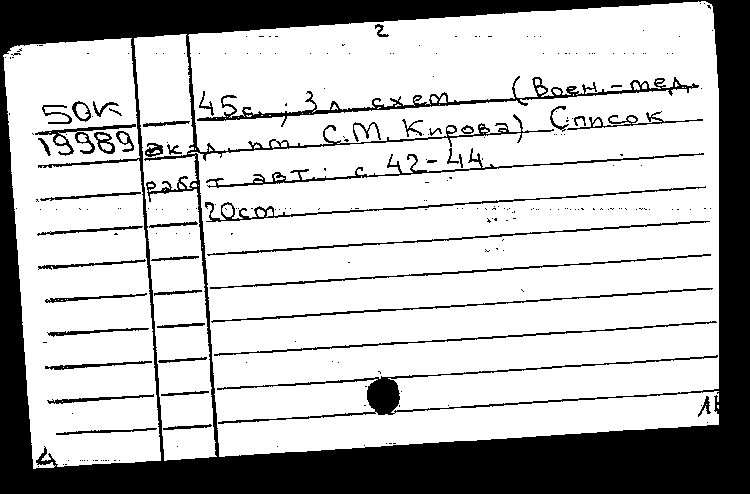 2
50К 45с.; 3 л. схем. (Воен.-мед.
19989 акад. им. С.М. Кирова) Список
работ авт.: с. 42-44.
20см.